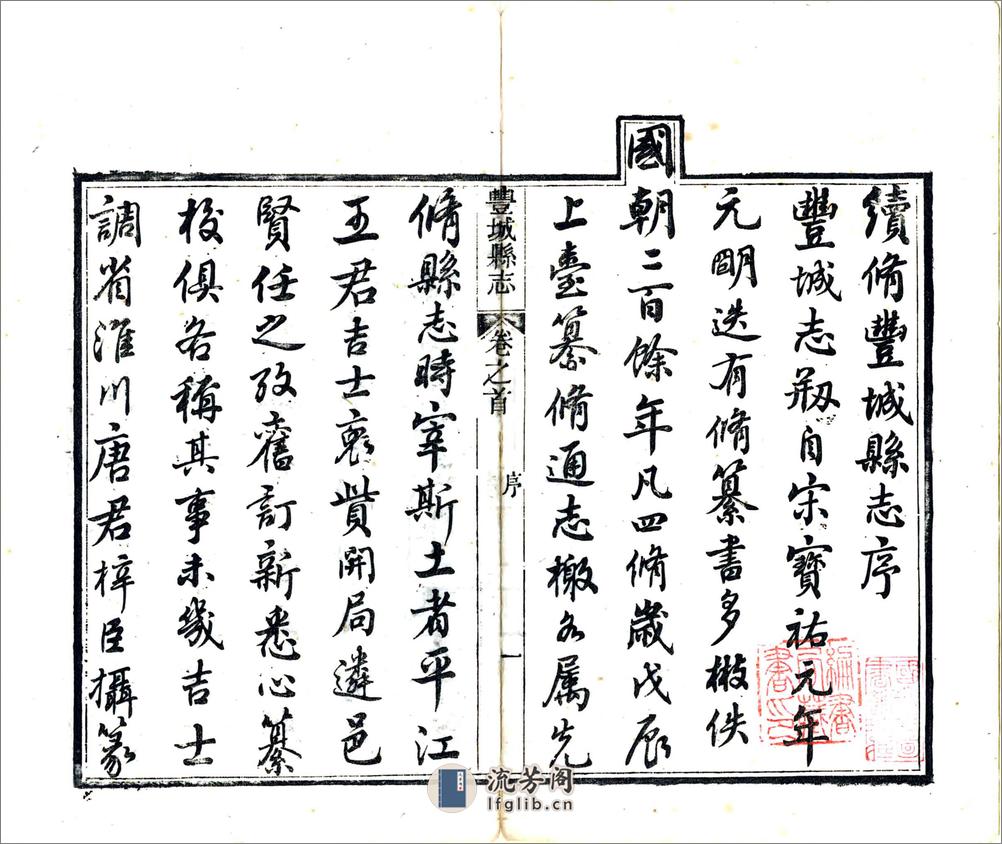 續脩豐城縣志序
豐城志刱自宋寶祐元年
元明迭有脩纂書多散佚
國朝二百餘年凡四脩歲戊辰
上臺纂脩通志檄各属先
豐城縣志 卷之首 序 一
脩縣志時宰斯土者平江
王君吉士裒貲開局遴邑
賢任之攷舊訂新悉心纂
校俱各稱其事未幾吉士
調省淮川唐君梓臣攝篆
流芳阁
lfglib.cn